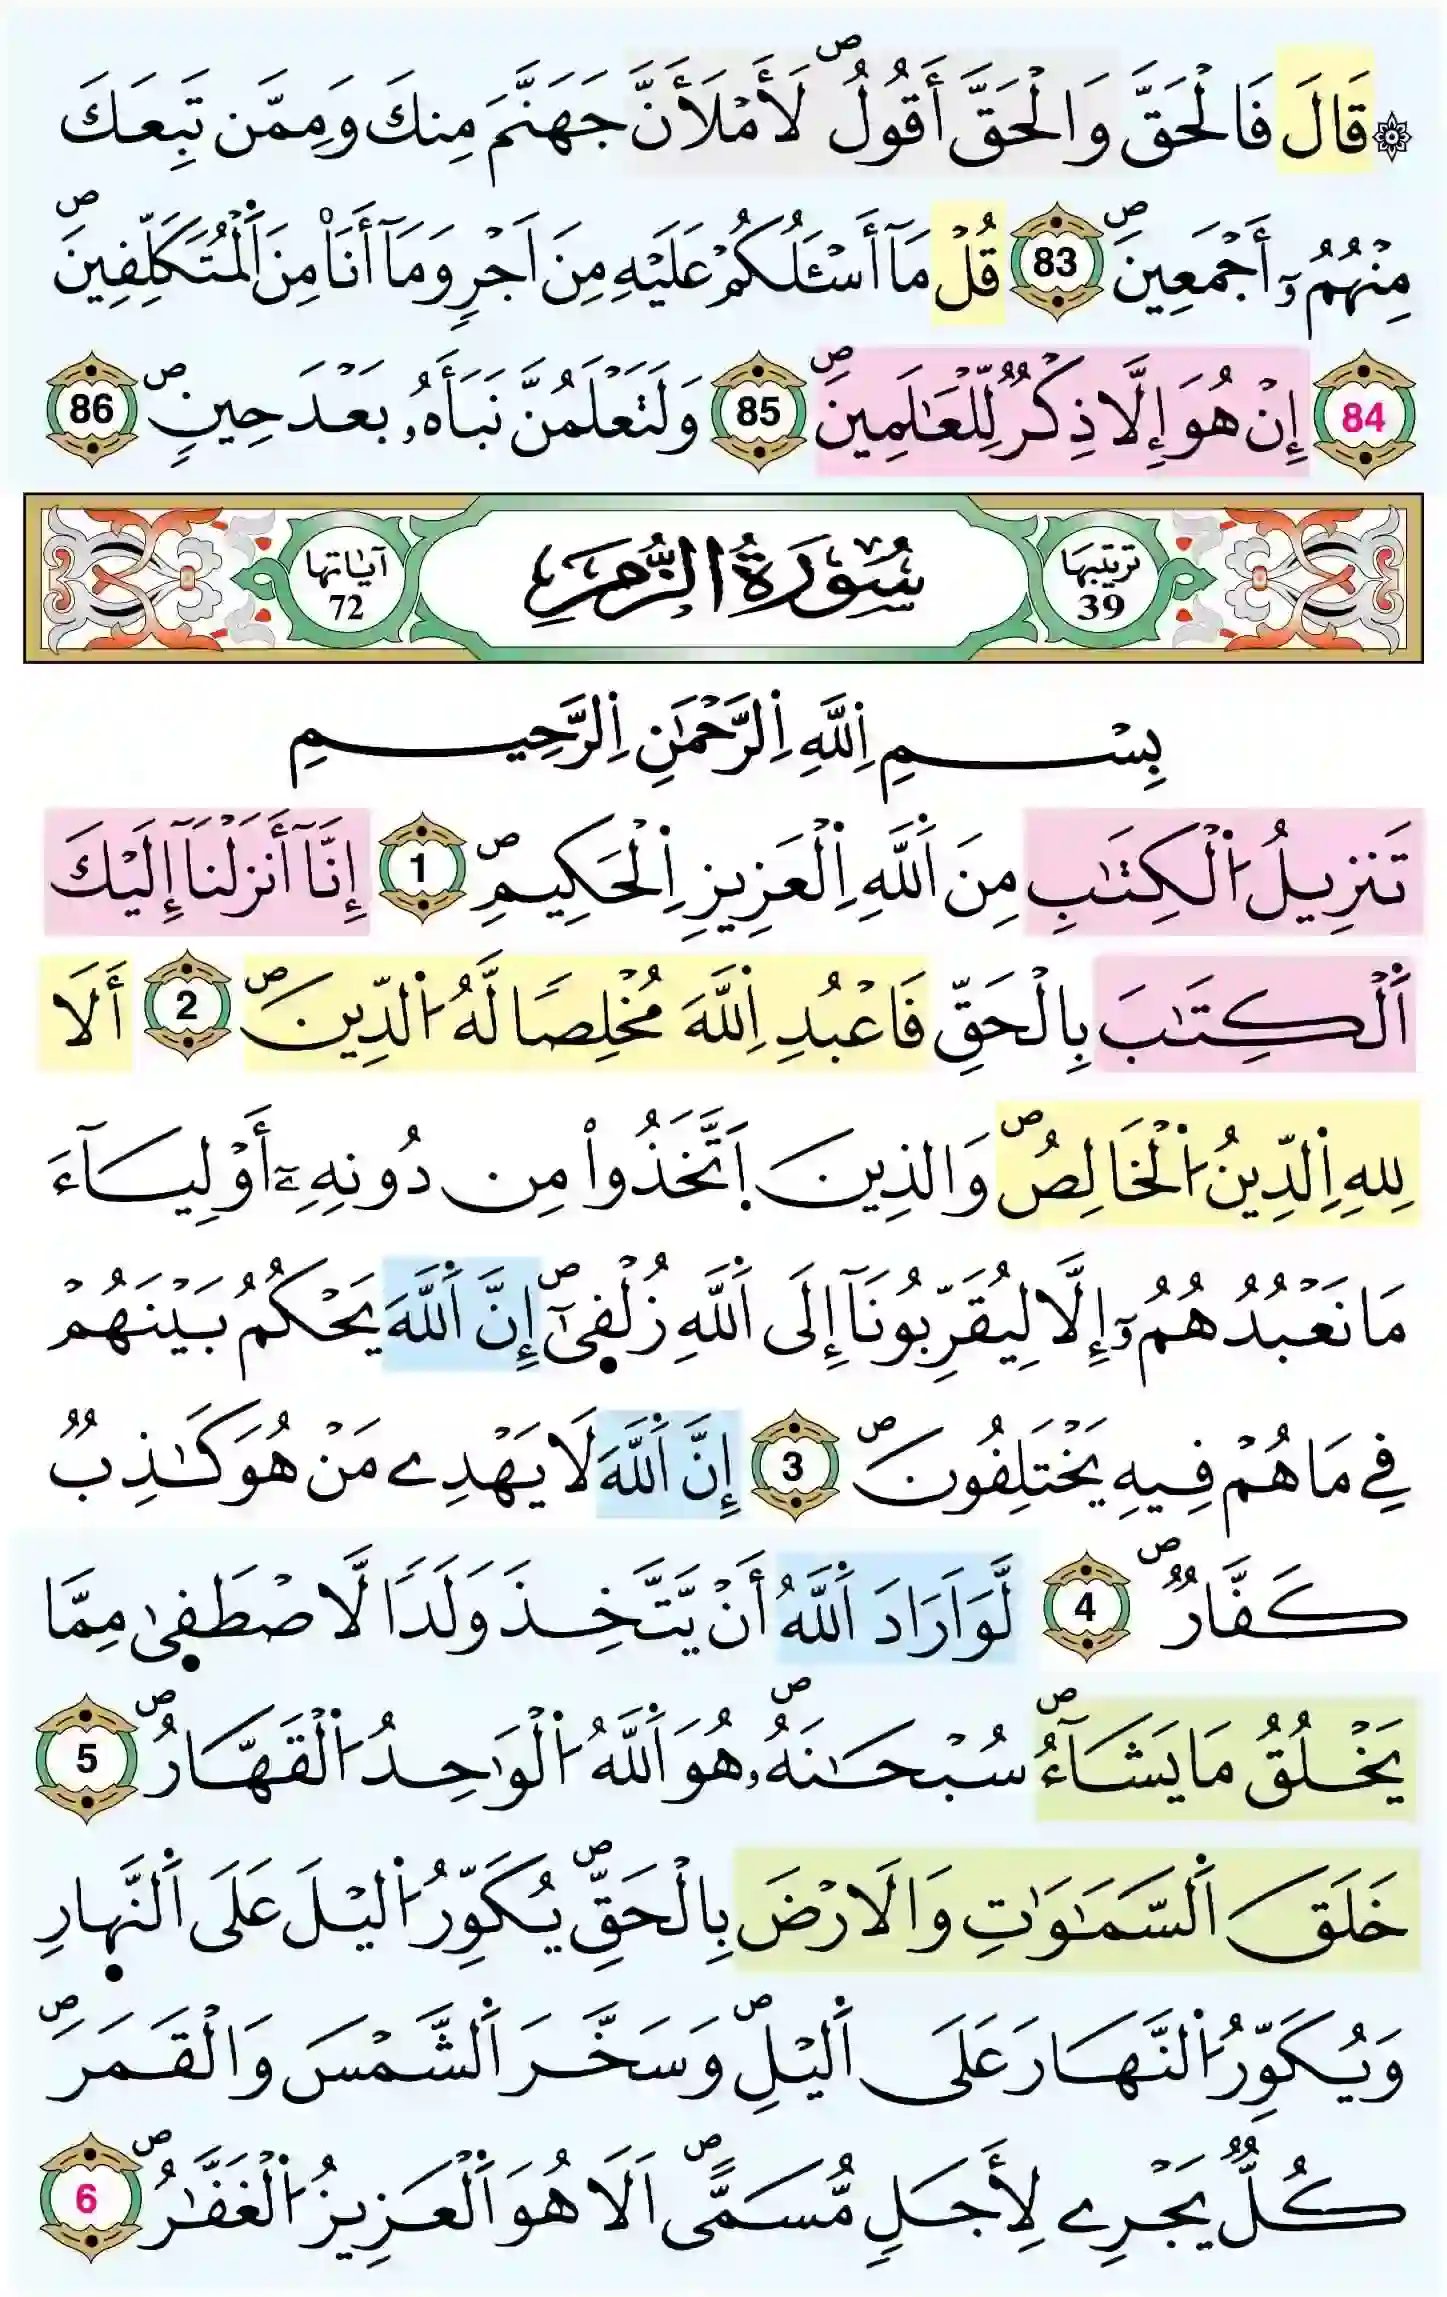 ۞ قَالَ فَالْحَقَّ وَالْحَقَّ أَقُولُ ۖ لَأَمْلَأَنَّ جَهَنَّمَ مِنكَ وَمِمَّن تَبِعَكَ
مِنْهُمُۥٓ أَجْمَعِينَ ۖ 83 قُلْ مَآ أَسْـَٔلُكُمْ عَلَيْهِ مِنَ اَجْرٍ وَمَآ أَنَا۠ مِنَ اَ۬لْمُتَكَلِّفِينَ ۖ
84 إِنْ هُوَ إِلَّا ذِكْرٌ لِّلْعَٰلَمِينَ ۖ 85 وَلَتَعْلَمُنَّ نَبَأَهُۥ بَعْدَ حِينٍ ۖ 86
ترتيبها 39 سُورَةُ الزُّمَرِ آياتها 72
بِسْمِ اِ۬للَّهِ اِ۬لرَّحْمَٰنِ اِ۬لرَّحِيمِ
تَنزِيلُ اُ۬لْكِتَٰبِ مِنَ اَ۬للَّهِ اِ۬لْعَزِيزِ اِ۬لْحَكِيمِ ۖ 1 إِنَّآ أَنزَلْنَآ إِلَيْكَ
اَ۬لْكِتَٰبَ بِالْحَقِّ فَاعْبُدِ اِ۬للَّهَ مُخْلِصًا لَّهُ اُ۬لدِّينَ ۖ 2 أَلَا
لِلهِ اِ۬لدِّينُ اُ۬لْخَالِصُ ۖ وَالذِينَ اَ۪تَّخَذُوا۟ مِن دُونِهِۦٓ أَوْلِيَآءَ
مَا نَعْبُدُهُمُۥٓ إِلَّا لِيُقَرِّبُونَآ إِلَى اَ۬للَّهِ زُلْف۪ىٰٓ ۖ إِنَّ اَ۬للَّهَ يَحْكُمُ بَيْنَهُمْ
فِے مَا هُمْ فِيهِ يَخْتَلِفُونَ ۖ 3 إِنَّ اَ۬للَّهَ لَا يَهْدِے مَنْ هُوَ كَٰذِبٌ
كَفَّارٌ ۖ 4 لَّوَ اَرَادَ اَ۬للَّهُ أَنْ يَّتَّخِذَ وَلَدًا لَّاصْطَف۪ىٰ مِمَّا
يَخْلُقُ مَا يَشَآءُ ۖ سُبْحَٰنَهُۥ ۖ هُوَ اَ۬للَّهُ اُ۬لْوَٰحِدُ اُ۬لْقَهَّارُ ۖ 5
خَلَقَ اَ۬لسَّمَٰوَٰتِ وَالَارْضَ بِالْحَقِّ ۖ يُكَوِّرُ اُ۬ليْلَ عَلَى اَ۬لنَّه۪ارِ
وَيُكَوِّرُ اُ۬لنَّهَارَ عَلَى اَ۬ليْلِ ۖ وَسَخَّرَ اَ۬لشَّمْسَ وَالْقَمَرَ ۖ
كُلٌّ يَجْرِے لِأَجَلٍ مُّسَمًّى ۖ اَلَا هُوَ اَ۬لْعَزِيزُ اُ۬لْغَفَّٰرُ ۖ 6